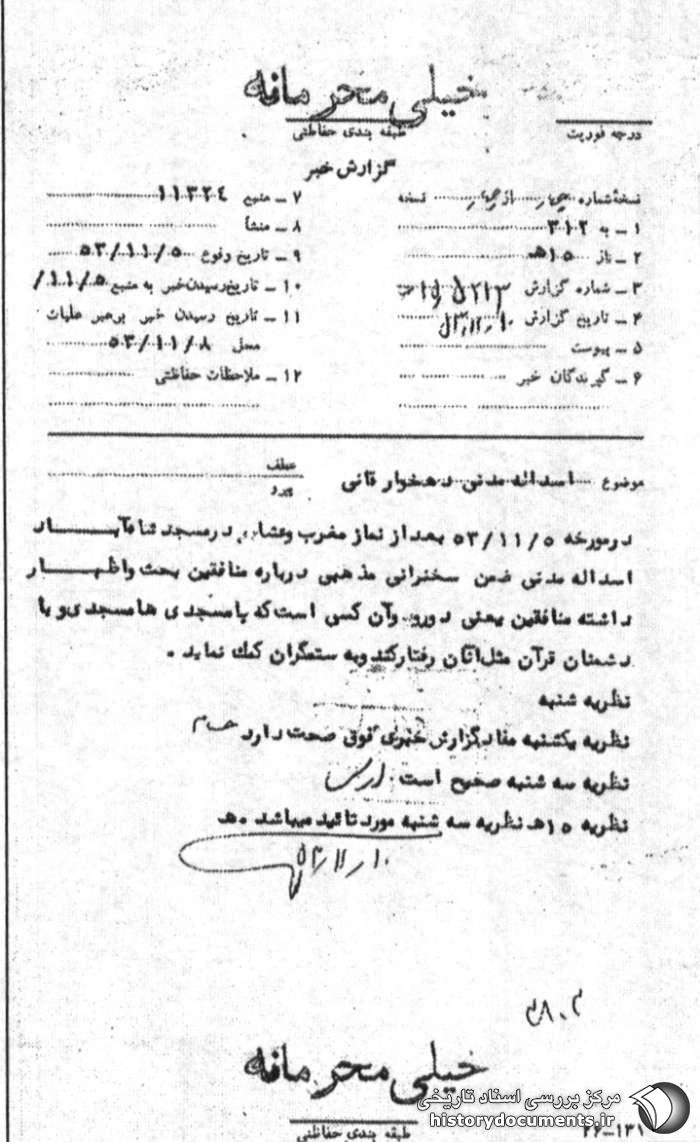 خیلی محرمانه
طبقه بندی حفاظتی
درجه فوریت
گزارش خبر
نسخهٔ شماره چهار از چهار نسخه
۱ ـ به ۳۱۲
۲ ـ از ۱۵ هـ
۳ ـ شماره گزارش
۴ ـ تاریخ گزارش ۵۳/۱۱/۱۰
۵ ـ پیوست
۶ ـ گیرندگان خبر
۷ ـ منبع ۱۱۳۲۴
۸ ـ منشأ
۹ ـ تاریخ وقوع ۵۳/۱۱/۵
۱۰ ـ تاریخ رسیدن خبر به منبع ۱۱/۵/
۱۱ ـ تاریخ رسیدن خبر برهبر عملیات
محل ۵۳/۱۱/۸
۱۲ ـ ملاحظات حفاظتی
موضوع اسداله مدنی دهخوارقانی
عطف
پیرو
درمورخه ۵۳/۱۱/۵ بعد از نماز مغرب وعشاء در مسجد
اسداله مدنی ضمن سخنرانی مذهبی درباره منافقین بحث واظهار
داشته منافقین یعنی دورو وآن کسی است که بامسجدی ها مسجدی و با
دشمنان قرآن مثل آنان رفتارکند وبه ستمگران کمك نماید .
نظریه شنبه
نظریه یکشنبه مفاد گزارش خبری فوق صحت دارد
نظریه سه شنبه صحیح است
نظریه ۱۵ هـ نظریه سه شنبه مورد تائید میباشد . هـ
۵۳/۱۱/۱۰
خیلی محرمانه
طبقه بندی حفاظتی
۲۶-۱۳۱
مرکز بررسی اسناد تاریخی
historydocuments.ir